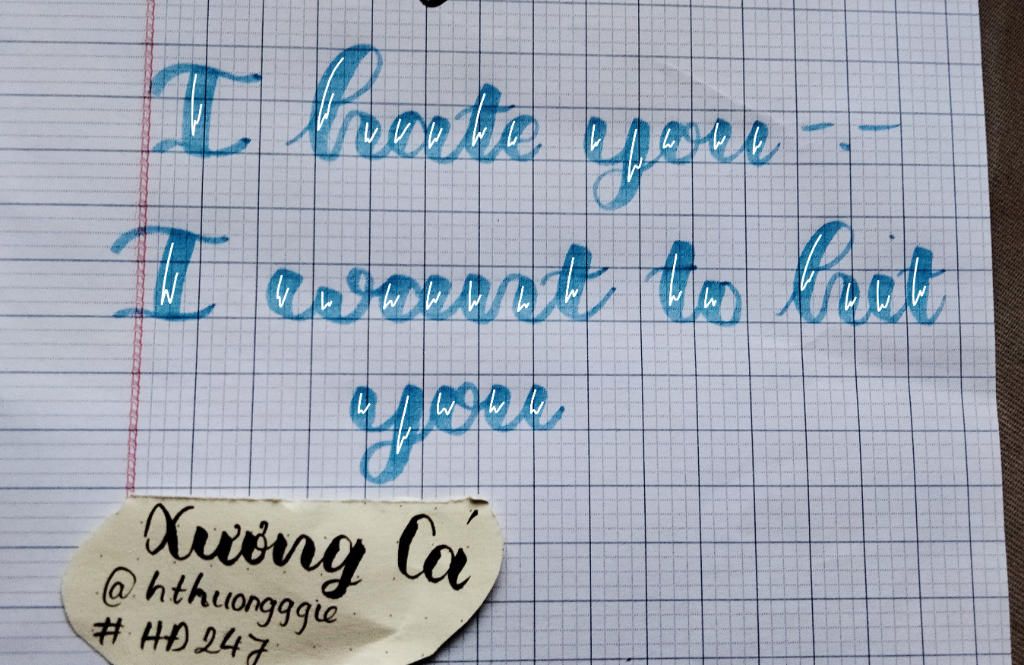 I hate you --
I want to hit
you
Xương Cá
@hthuongggie
# HĐ247